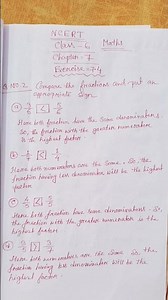 NCERT
Class - 6 Maths
Chapter - 7
Exercise - 7.4
Q.NO.2 Compare the fractions and put an
appropriate sign.
Here both fraction have the same denominator
So, the fraction with the greater numerator
is the highest factor
Here both numerators are the same. So, the
fraction having less denominator will be the highest
factor.
Here both fraction have same denominators. So
the fraction with the greater numerator is the
highest factor
Here both numerators are the same So, the
fraction having less denominator will be the
highest factor.